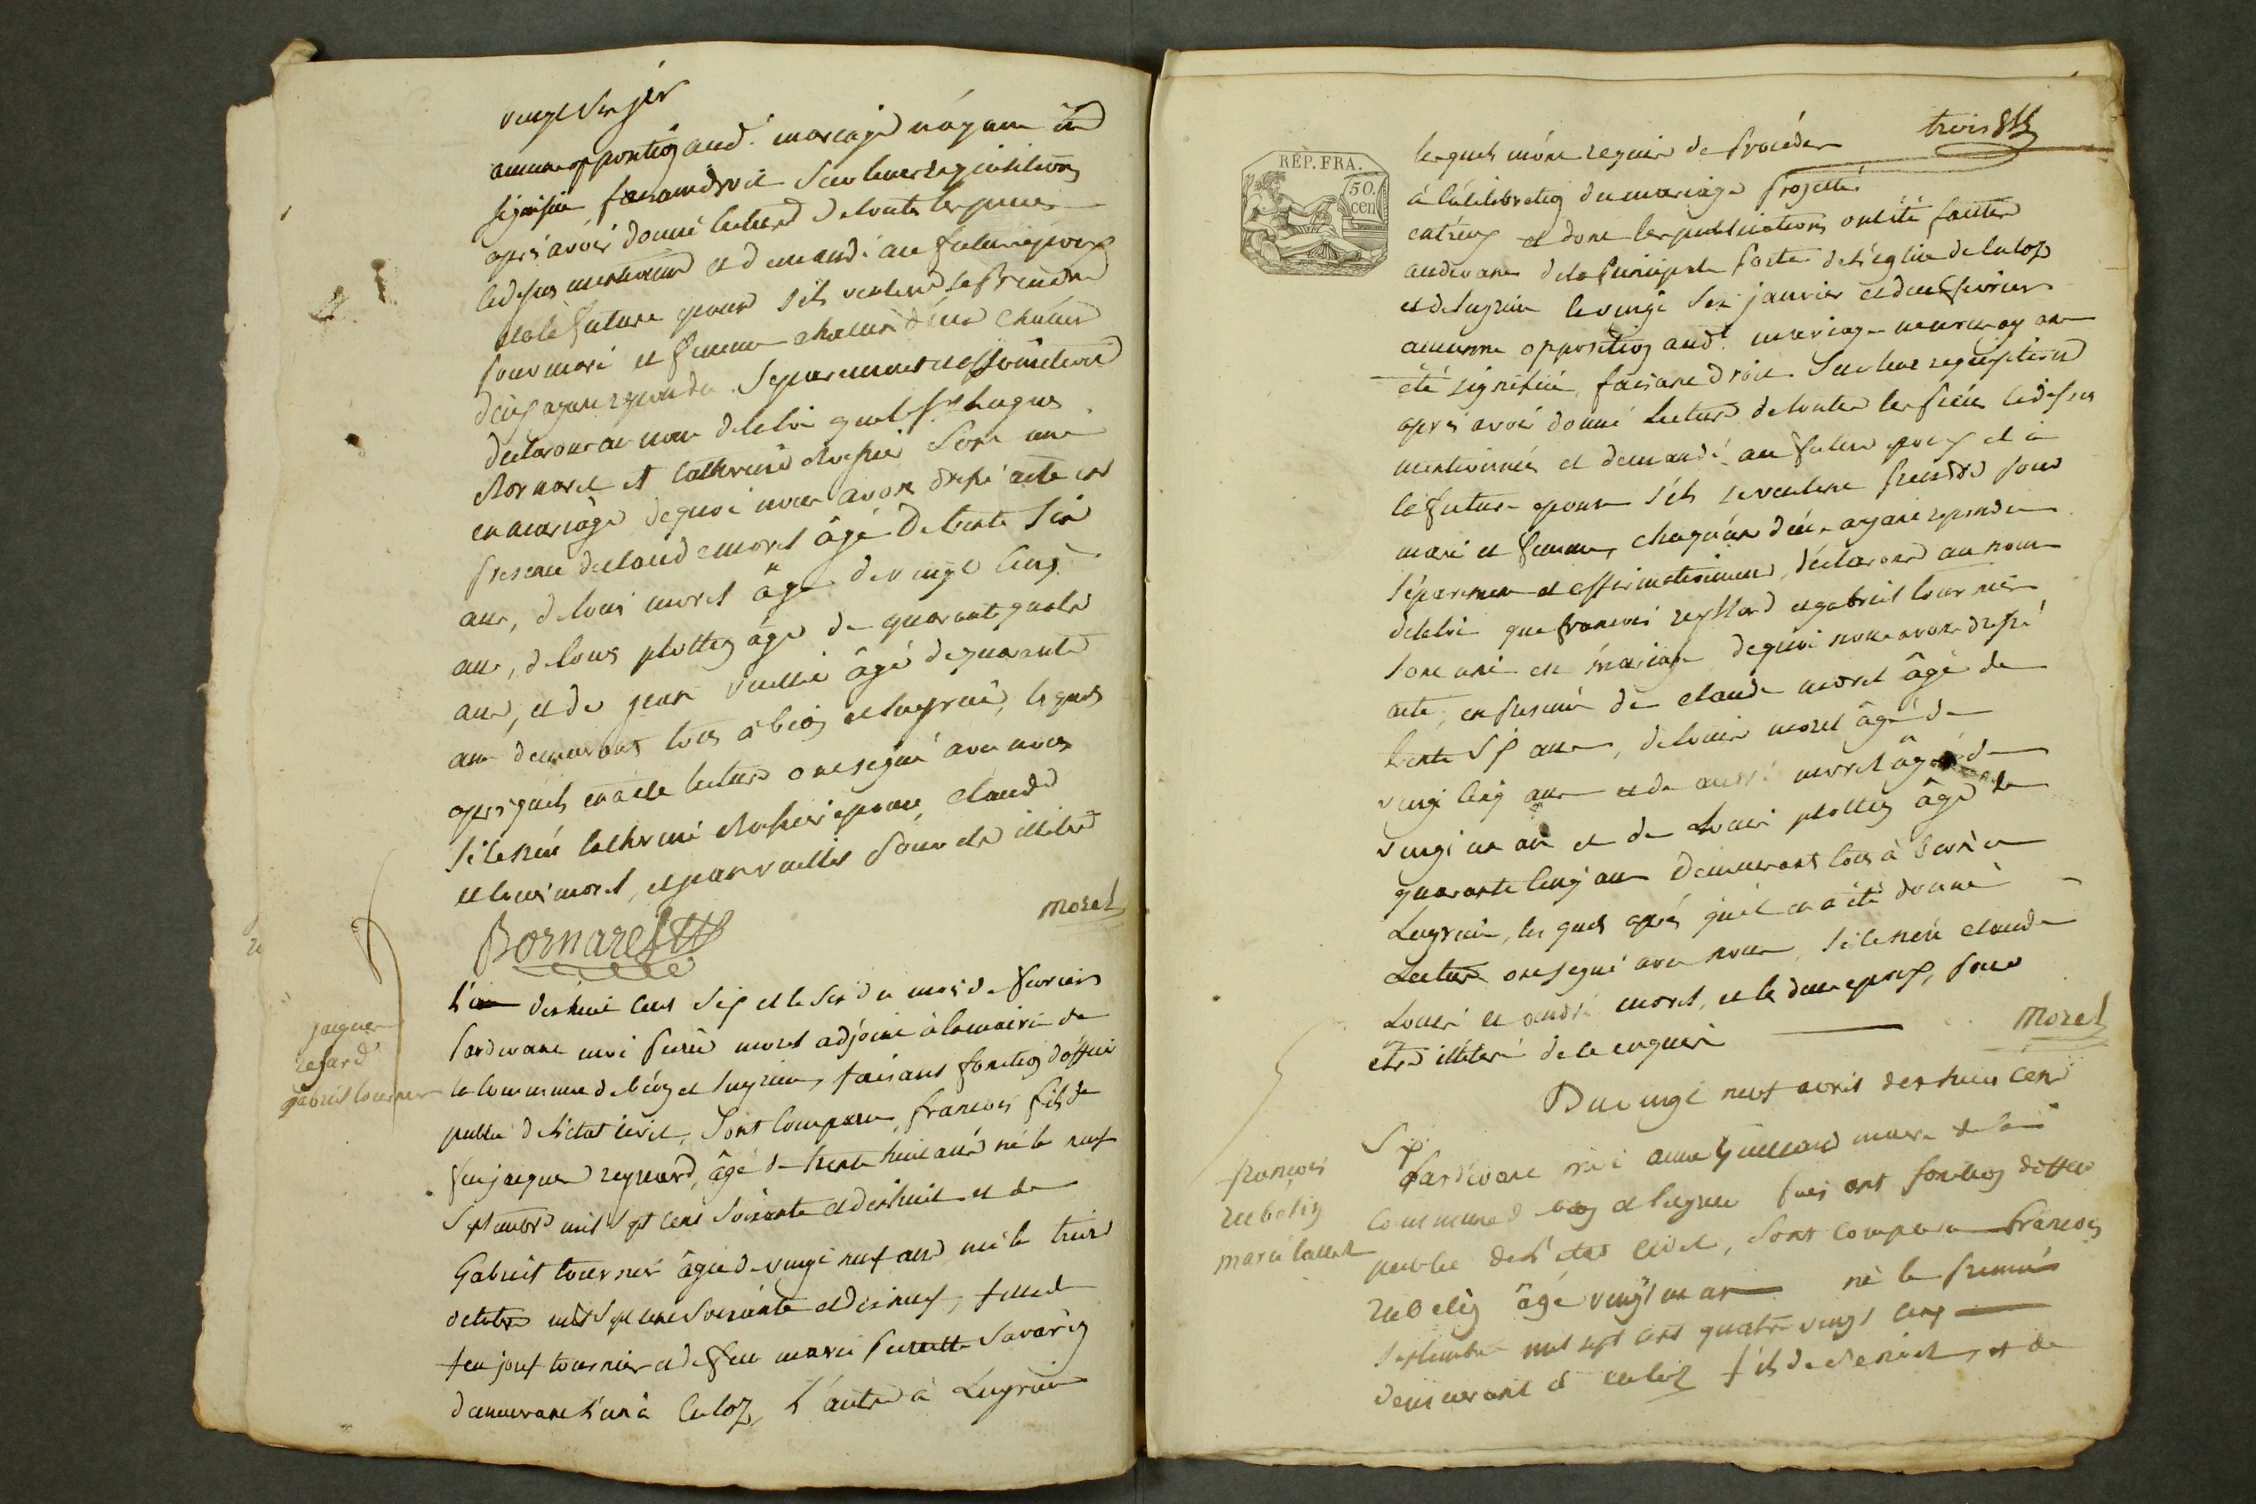 vingt six jer
aucune opposition aud. mariage n'ayant été
signifiée, faisant droit sur leurs requisitions
après avoir donné lecture de toutes les pieces
cidessus mentionnées et demandé au futur epoux
et à la future epouse s'ils veulent se prendre
pour mari et femme chacun d'eux chacun
d'eux ayant repondu separement et affirmativement
declarons au nom de la loi que hugues
Bornarel et Catherine sont unis
en mariage de quoi nous avons dressé acte en
presence de claude morel âgé de trente six
ans, de louis morel âgé de vingt cinq
ans, de louis plottoz âgé de quarante quatre
ans, et de jean vuellie âgé de quarante
ans demeurants tous à béoz et lugrin, lesquels
après qu'ils en a été lecture ont signé avec nous
si le n'en Catherine epouse, claude
et louis morel, et jean vuellie pour etre illitéré
Bornarel
morel
jaques
refard
gabriel tournier
L'an dix huit cent sept et le six du mois de fevrier
Pardevant moi pierre morel adjoint à la mairie de
la commune de béoz et lugrin, faisant fonction d'officier
public de l'état civil, sont comparu, francois fils de
feu jaques reynard, âgé de trente huit ans né le neuf
Septembre mil sept cent soixante et dix huit et de
Gabriel tournier âgée de vingt neuf ans née le trois
octobre mil sept cent soixante et dix neuf, fille de
feu josef tournier et de feu marie pernette Savarioz
demeurant l'un à Culoz, l'autre à Lugrin
trois
RÉP. FRA.
50.
cen
lesquels m'ont requis de proceder
à la célébration du mariage projetté
entr'eux et dont les publications ont été faites
audevant de la principale porte de l'église de culoz
et de lugrin le vingt six janvier et deux fevrier
aucunne opposition aud. mariage ayant
été signifiée, faisant droit sur leur requisition
après avoir donné lecture de toutes les pieces cidessus
mentionnées et demandé au futur epoux et à
la future epouse s'ils se veulent prendre pour
mari et femme, chaqu'un d'eux ayant repondu
séparement et affirmativement, déclarons au nom
de la loi que francois reynard et gabriel tournier
sont unis en mariage de quoi nous avons dressé
acte, en presence de claude morel âgé de
trente sept ans, de louis morel âgé de
vingt cinq ans et de andré morel âgé de
vingt un an et de Louis plottoz âgé de
quarante cinq ans demeurant tous à béon et
Lugrin, les quels après qu'il en a été donné
Lecture ont signé avec nous, si le n'en claude
Louis et andré morel, et les deux epoux, pour
etre illitéré de ce enquis
Morel
françois
rubelin
marie
Du vingt neuf avril dix huit cent
Sept
Pardevant moi maire de la
commune de béoz et lugrin faisant fonction d'officier
public de l'état civil, sont comparu François
rubelin âgé vingt un an né le premier
septembre mil sept cent quatre vingt cinq
demeurant à culoz fils de et de